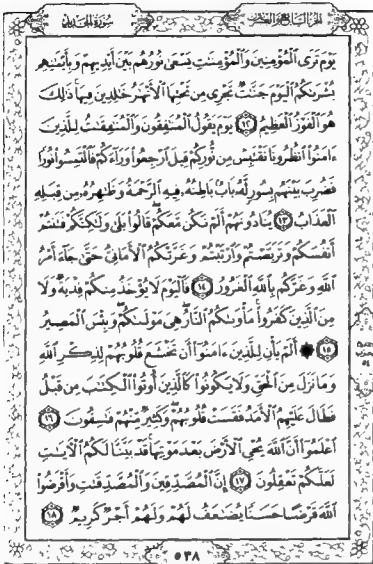 الجزء السابع والعشرون
سورة الحديد
يَوْمَ تَرَى ٱلْمُؤْمِنِينَ وَٱلْمُؤْمِنَٰتِ يَسْعَىٰ نُورُهُم بَيْنَ أَيْدِيهِمْ وَبِأَيْمَٰنِهِم
بُشْرَىٰكُمُ ٱلْيَوْمَ جَنَّٰتٌ تَجْرِى مِن تَحْتِهَا ٱلْأَنْهَٰرُ خَٰلِدِينَ فِيهَا ذَٰلِكَ
هُوَ ٱلْفَوْزُ ٱلْعَظِيمُ ١٢ يَوْمَ يَقُولُ ٱلْمُنَٰفِقُونَ وَٱلْمُنَٰفِقَٰتُ لِلَّذِينَ
ءَامَنُوا۟ ٱنظُرُونَا نَقْتَبِسْ مِن نُّورِكُمْ قِيلَ ٱرْجِعُوا۟ وَرَآءَكُمْ فَٱلْتَمِسُوا۟ نُورًا
فَضُرِبَ بَيْنَهُم بِسُورٍ لَّهُۥ بَابٌۢ بَاطِنُهُۥ فِيهِ ٱلرَّحْمَةُ وَظَٰهِرُهُۥ مِن قِبَلِهِ
ٱلْعَذَابُ ١٣ يُنَادُونَهُمْ أَلَمْ نَكُن مَّعَكُمْ قَالُوا۟ بَلَىٰ وَلَٰكِنَّكُمْ فَتَنتُمْ
أَنفُسَكُمْ وَتَرَبَّصْتُمْ وَٱرْتَبْتُمْ وَغَرَّتْكُمُ ٱلْأَمَانِىُّ حَتَّىٰ جَآءَ أَمْرُ
ٱللَّهِ وَغَرَّكُم بِٱللَّهِ ٱلْغَرُورُ ١٤ فَٱلْيَوْمَ لَا يُؤْخَذُ مِنكُمْ فِدْيَةٌ وَلَا
مِنَ ٱلَّذِينَ كَفَرُوا۟ مَأْوَىٰكُمُ ٱلنَّارُ هِىَ مَوْلَىٰكُمْ وَبِئْسَ ٱلْمَصِيرُ
١٥ ۞ أَلَمْ يَأْنِ لِلَّذِينَ ءَامَنُوٓا۟ أَن تَخْشَعَ قُلُوبُهُمْ لِذِكْرِ ٱللَّهِ
وَمَا نَزَلَ مِنَ ٱلْحَقِّ وَلَا يَكُونُوا۟ كَٱلَّذِينَ أُوتُوا۟ ٱلْكِتَٰبَ مِن قَبْلُ
فَطَالَ عَلَيْهِمُ ٱلْأَمَدُ فَقَسَتْ قُلُوبُهُمْ وَكَثِيرٌ مِّنْهُمْ فَٰسِقُونَ ١٦
ٱعْلَمُوٓا۟ أَنَّ ٱللَّهَ يُحْىِ ٱلْأَرْضَ بَعْدَ مَوْتِهَا قَدْ بَيَّنَّا لَكُمُ ٱلْءَايَٰتِ
لَعَلَّكُمْ تَعْقِلُونَ ١٧ إِنَّ ٱلْمُصَّدِّقِينَ وَٱلْمُصَّدِّقَٰتِ وَأَقْرَضُوا۟
ٱللَّهَ قَرْضًا حَسَنًا يُضَٰعَفُ لَهُمْ وَلَهُمْ أَجْرٌ كَرِيمٌ ١٨
٥٣٨